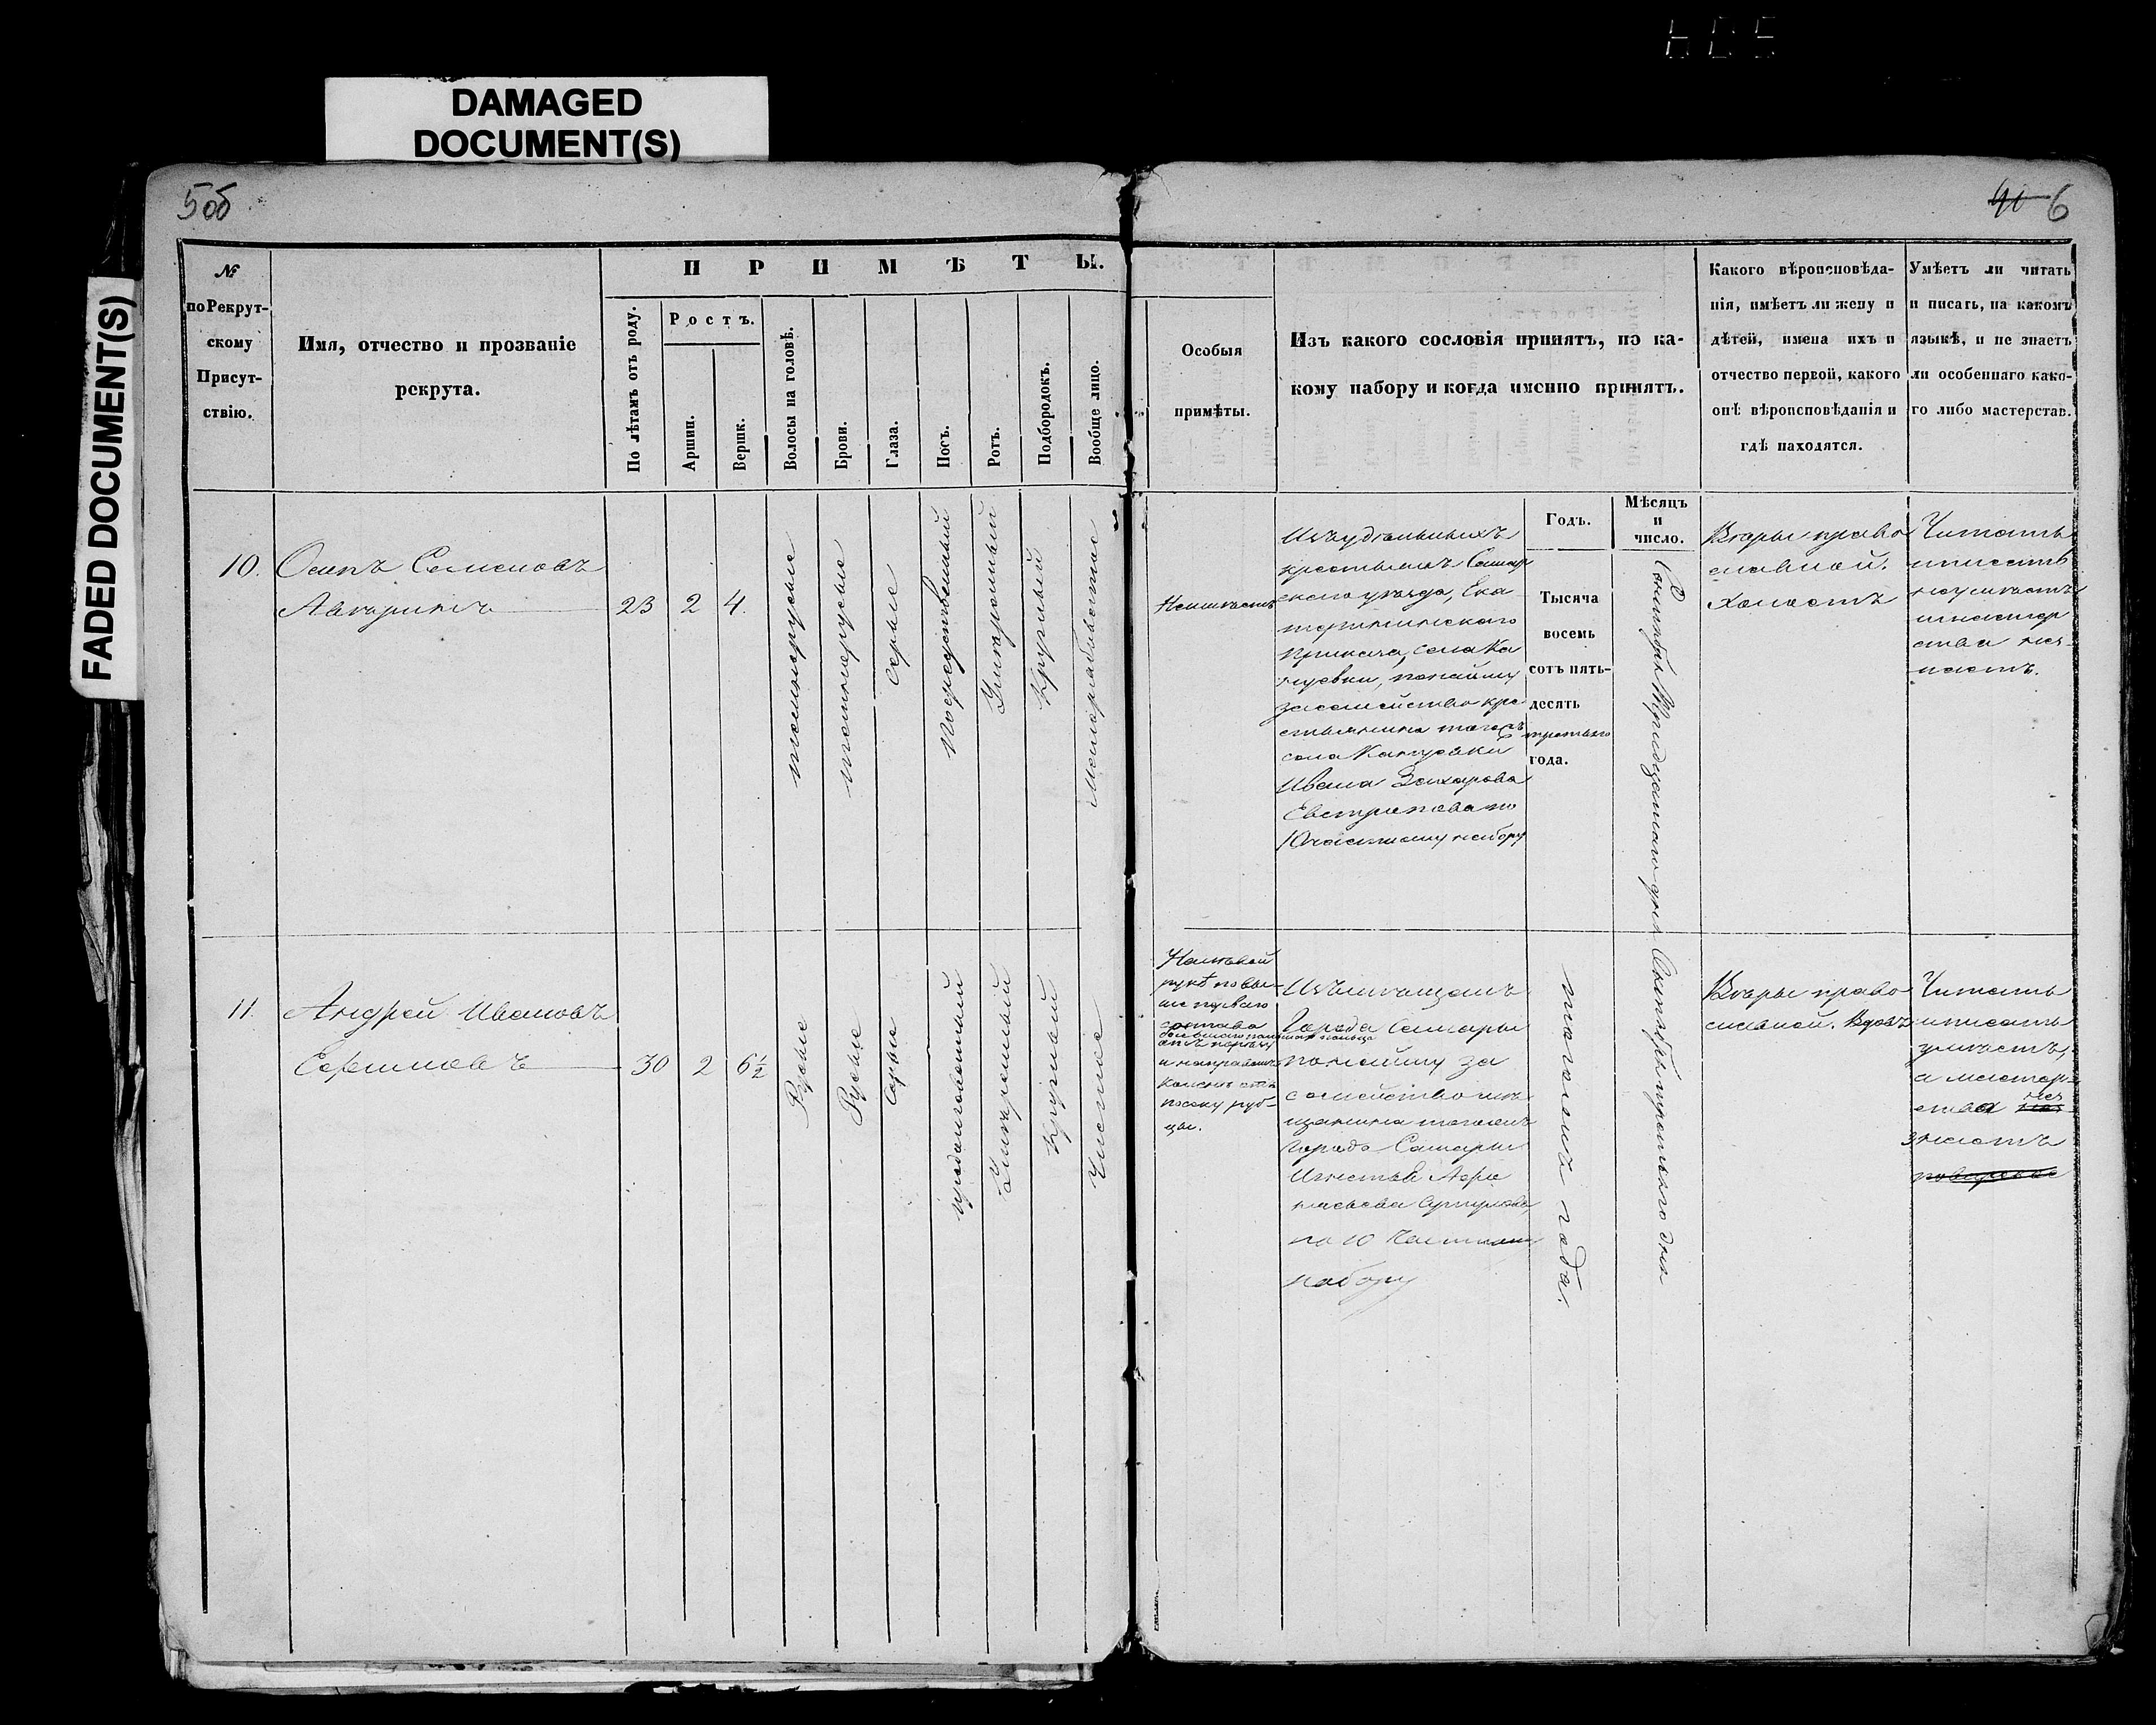 DAMAGED
DOCUMENT(S)
FADED DOCUMENT(S)
5об
40 6
№
по Рекрут-
скому
Присут-
ствію.
Имя, отчество и прозваніе
рекрута.
П Р И М Ѣ Т Ы.
По лѣтамъ отъ роду.
Ростъ.
Аршин.
Вершк.
Волосы на головѣ.
Брови.
Глаза.
Носъ.
Ротъ.
Подбородокъ.
Вообще лицо.
Особыя
примѣты.
Изъ какого сословія принятъ, по ка-
кому набору и когда именно принятъ.
Какого вѣроисповѣда-
нія, имѣетъ ли жену и
дѣтей, имена ихъ и
отчество первой, какого
онѣ вѣроисповѣданія и
гдѣ находятся.
Умѣетъ ли читать
и писать, на какомъ
языкѣ, и не знаетъ
ли особеннаго како-
го либо мастерства.
Годъ.
Мѣсяцъ
и
число.
10.
Осипъ Семеновъ
23
2
4.
темнорусые
темнорусые
серые
посредственный
умеренный
круглый
Неимѣетъ
Изъ удельныхъ
крестьянъ Самар
скаго уезда, Ека
терининскаго
Приказа, села Ка
понайму
за семейство кре
стьянина тогожъ
села
Ивана Захарова
по
10 частному набору
Тысяча
восемь
сотъ пять-
десять
третьяго
года.
Сентября Тридцатаго дня
Веры право
славной.
холостъ
Читать
и писать
неумѣетъ
и мастер
ства нез-
наетъ.
11.
Андрей Ивановъ
Ефимовъ
30
2
6½
Русые
Русые
Серые
продолговатый
умеренный
круглый
Чистое
На левой
рукѣ повы-
ше перваго
состава
большаго пальца
коленѣ отъ
посеку руб-
цы.
Изъ мещанъ
Города Самары
понайму за
семейство ме
щанина тогожъ
города Самары
Игнатья Афа
насьева
по 10 Частному
набору
тогожъ года.
Октября третьяго дня
Веры право
славной. Вдовъ
Читать
и писать
умѣетъ,
а мастер-
ства нез
знаетъ
поварское